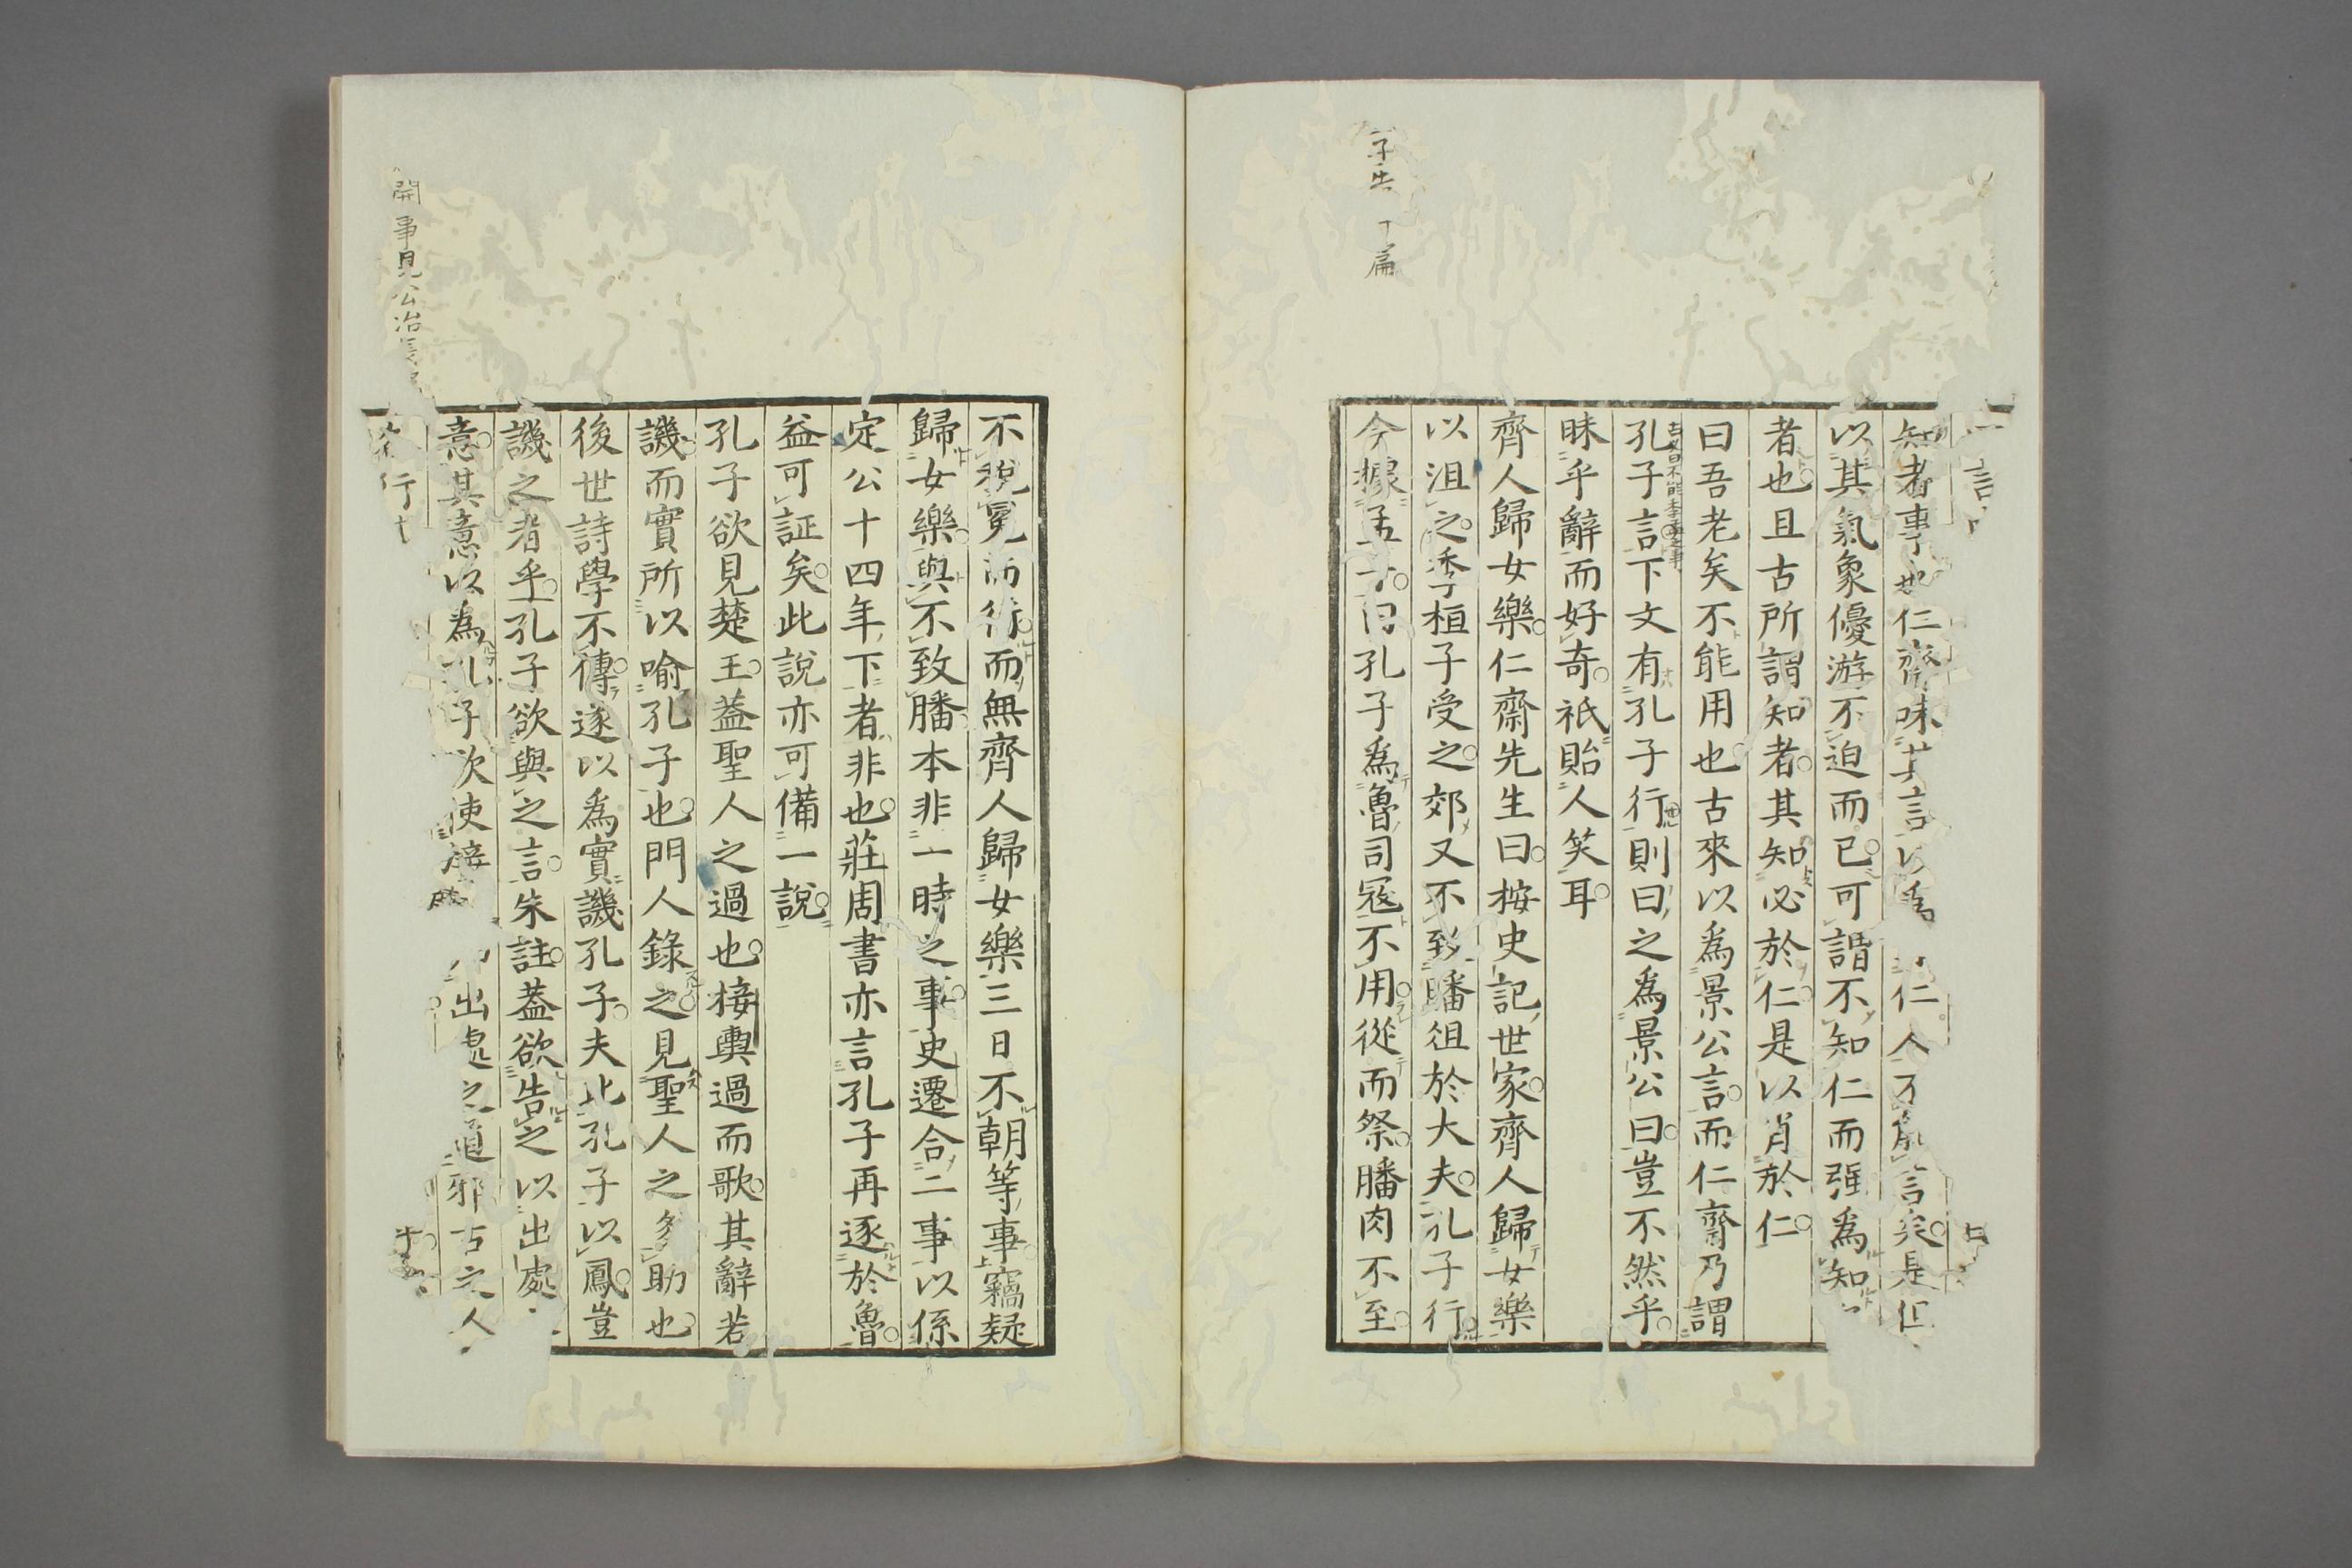 子告 十篇
知者事也仁齋味其言以為 仁人不能言矣是
以其氣象優游不迫而已可謂不知仁而强為知
者也且古所謂知者其知必於仁是以肖於仁
曰吾老矣不能用也古來以為景公言而仁齋乃謂
孔子言下文有孔子行則曰之為景公曰豈不然乎
昧乎辭而好奇祇貽人笑耳
齊人歸女樂仁齋先生曰桉史記世家齊人歸女樂
以沮之季桓子受之郊又不致膰徂於大夫孔子行
今據孟子曰孔子為魯司寇不用從而祭膰肉不至
開事見公冶長
不稅冕而行而無齊人歸女樂三日不朝等事竊疑
歸女樂與不致膰本非一時之事史遷合二事以係
定公十四年下者非也莊周書亦言孔子再逐於魯
益可証矣此說亦可備一說
孔子欲見楚王蓋聖人之過也接輿過而歌其辭若
譏而實所以喻孔子也門人錄之見聖人之多助也
後世詩學不傳遂以為實譏孔子夫比孔子以鳳豈
譏之者乎孔子欲與之言朱註蓋欲告之以出處
意其意以為孔子欲使接 出處之道邪古之人
行